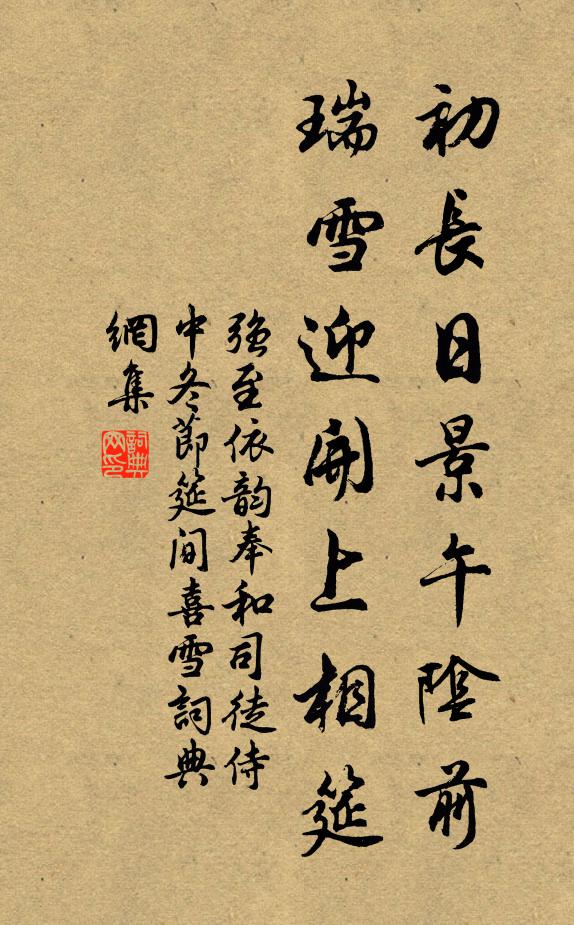 初長日景午陰前
瑞雪迎開上相筵
強至依韵奉和司徒侍
中冬節筵间喜雪詞典
網集
詞典網印